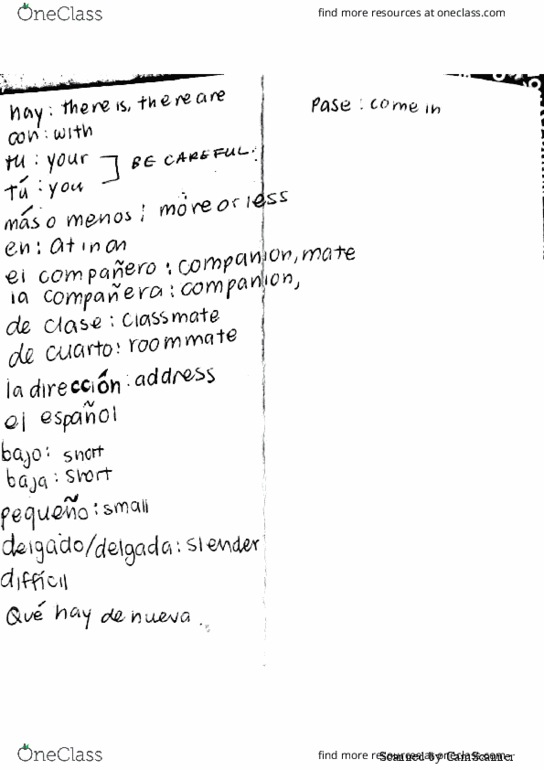 OneClass
find more resources at oneclass.com
hay: there is, there are
con: with
tu: your
tú: you
BE CAREFUL:
más o menos: more or less
en: at in on
el compañero: companion, mate
la compañera: companion,
de clase: classmate
de cuarto: roommate
la dirección: address
el español
bajo: short
baja: short
pequeño: small
delgado/delgada: slender
difficil
Qué hay de nueva.
Pase: come in
OneClass
find more resources at oneclass.com
Scanned by CamScanner